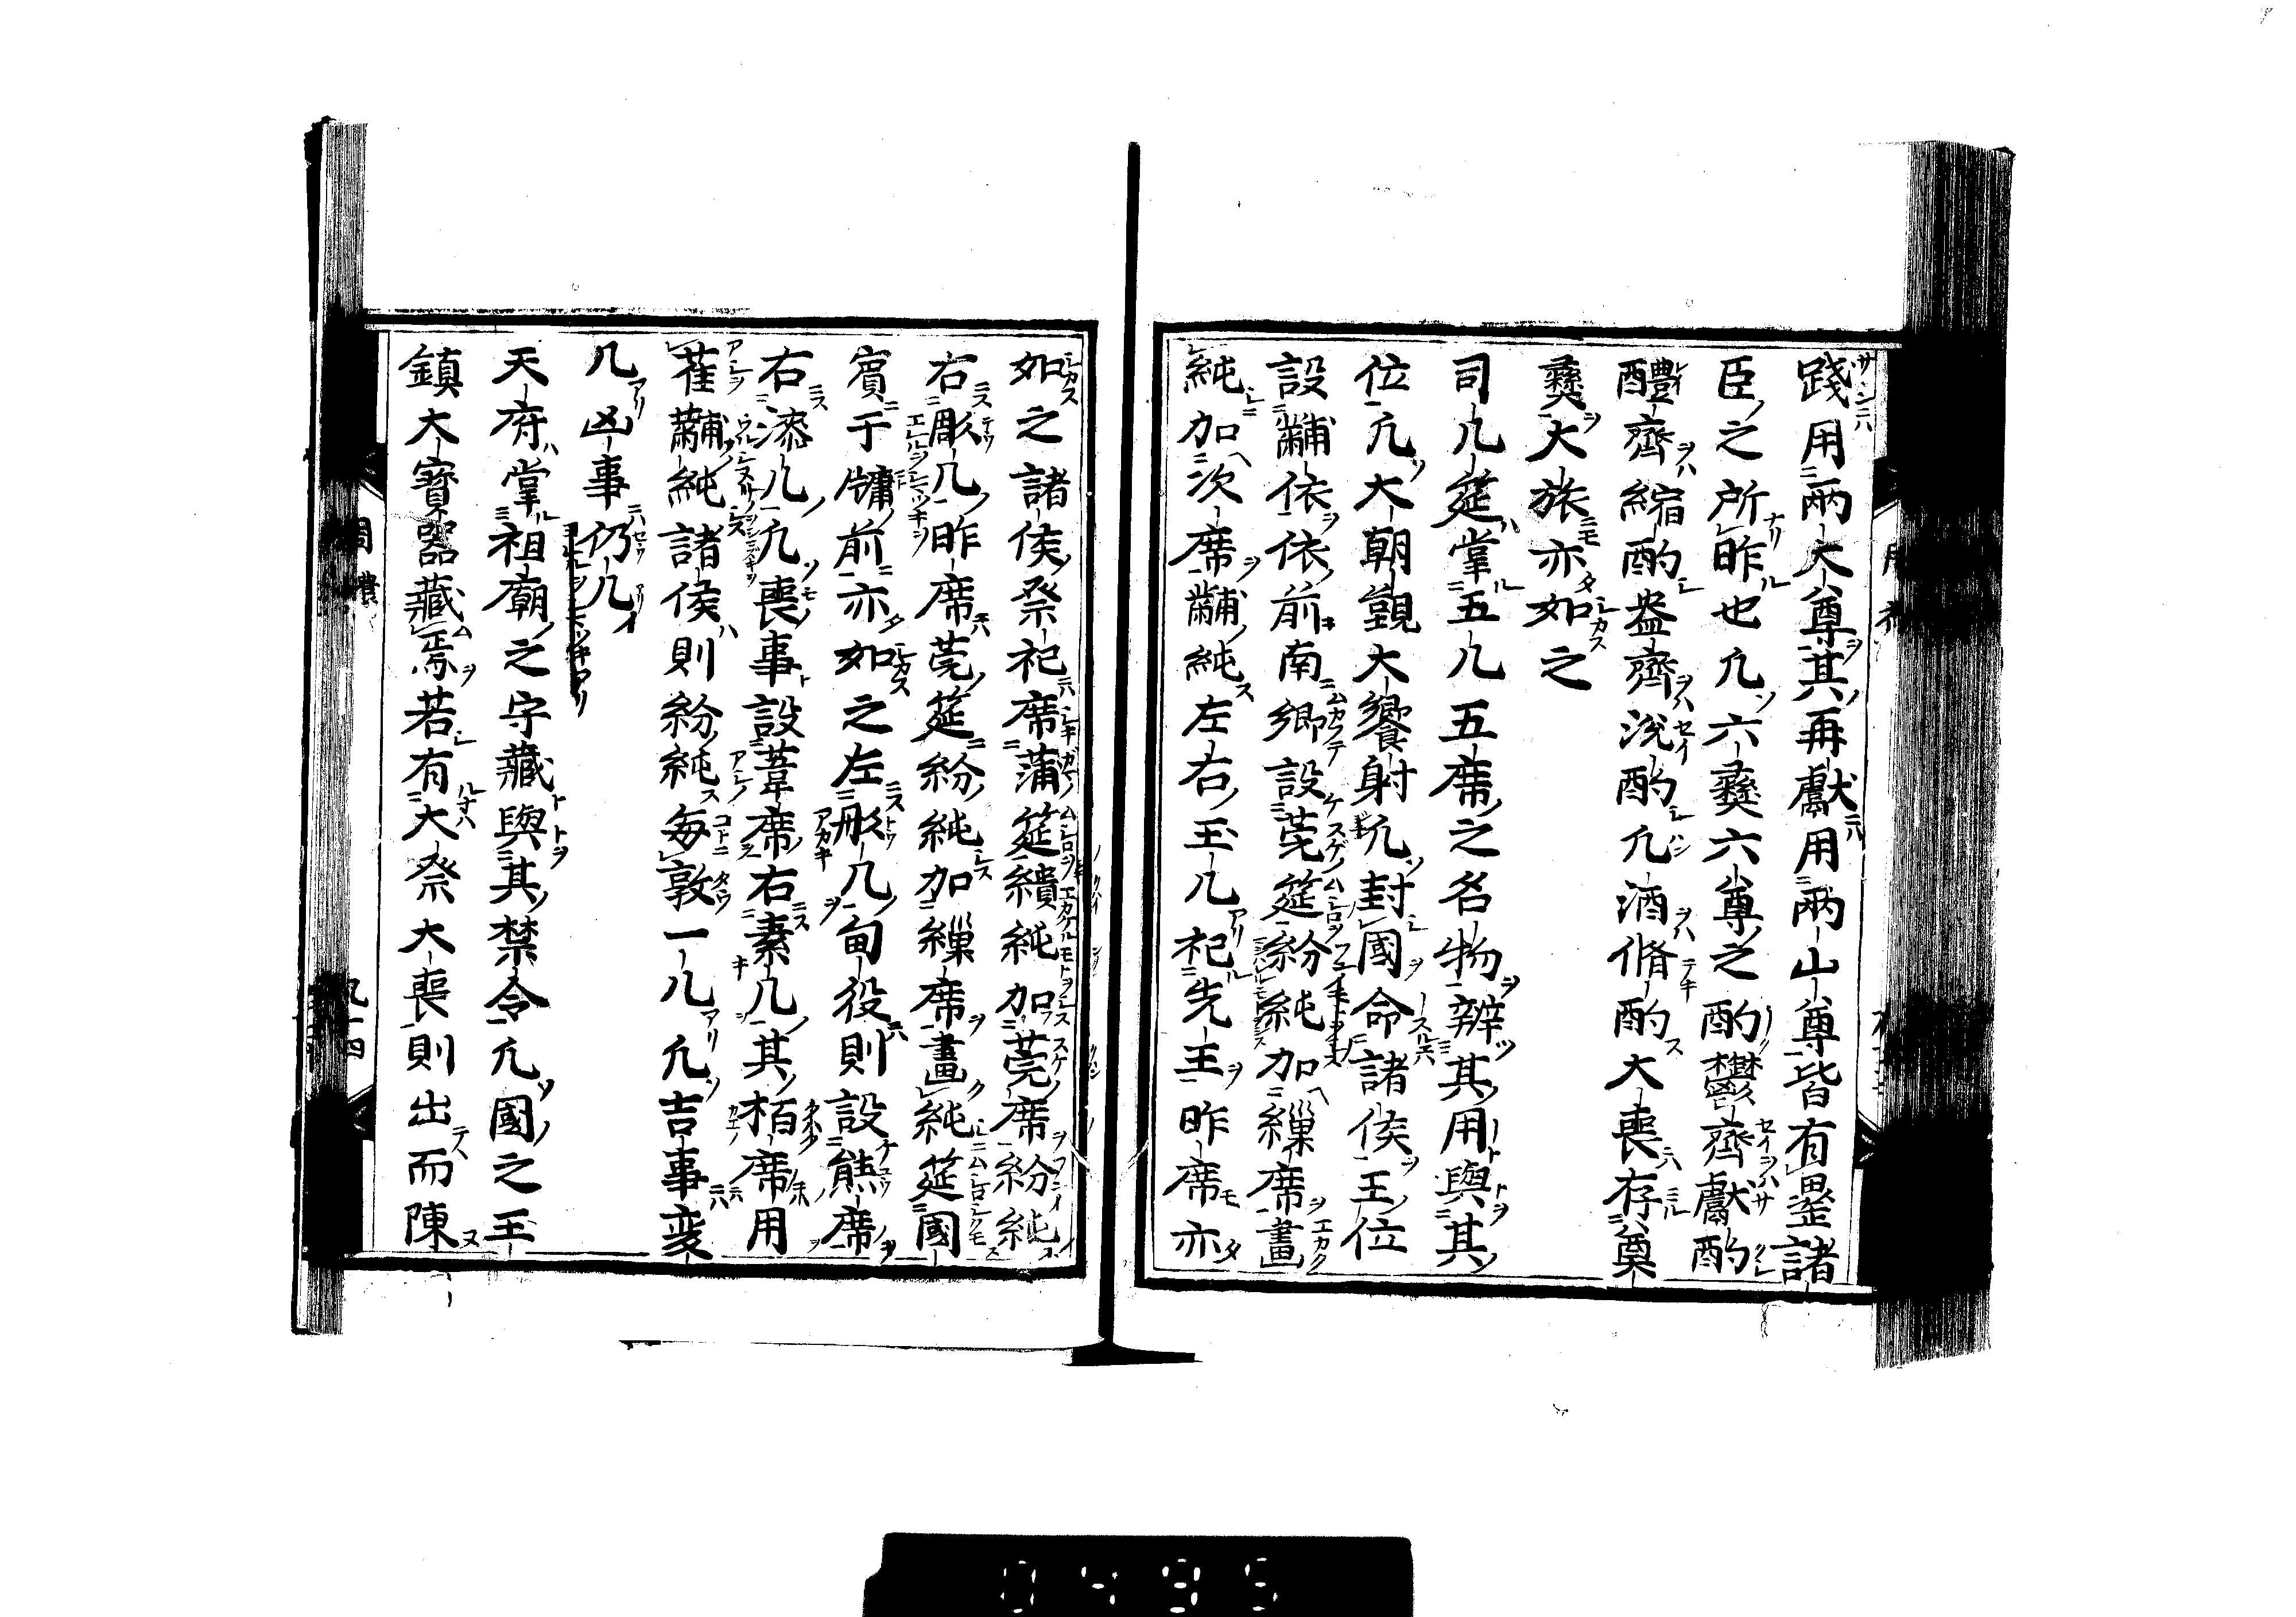 踐用兩大尊其再獻用兩山尊皆有罍諸
臣之所昨也凢六彝六尊之酌鬱齊獻酌
醴齊縮酌盎齊涚酌凢酒脩酌大喪存奠
彝大旅亦如之
司几筵掌五几五席之名物辨其用與其
位凢大朝覲大饗射凢封國命諸侯王位
設黼依依前南鄉設莞筵紛純加繅席畫
純加次席黼純左右玉几祀先王昨席亦
如之諸侯祭祀席蒲筵繢純加莞席紛純
右彫几昨席莞筵紛純加繅席畫純筵國
賓于牖前亦如之左彤几甸役則設熊席
右漆几凢喪事設葦席右素几其柏席用
萑黼純諸侯則紛純每敦一几凢吉事変
几凶事仍几
天府掌祖廟之守藏與其禁令凢國之玉
鎮大寶器藏焉若有大祭大喪則出而陳
周禮
0495